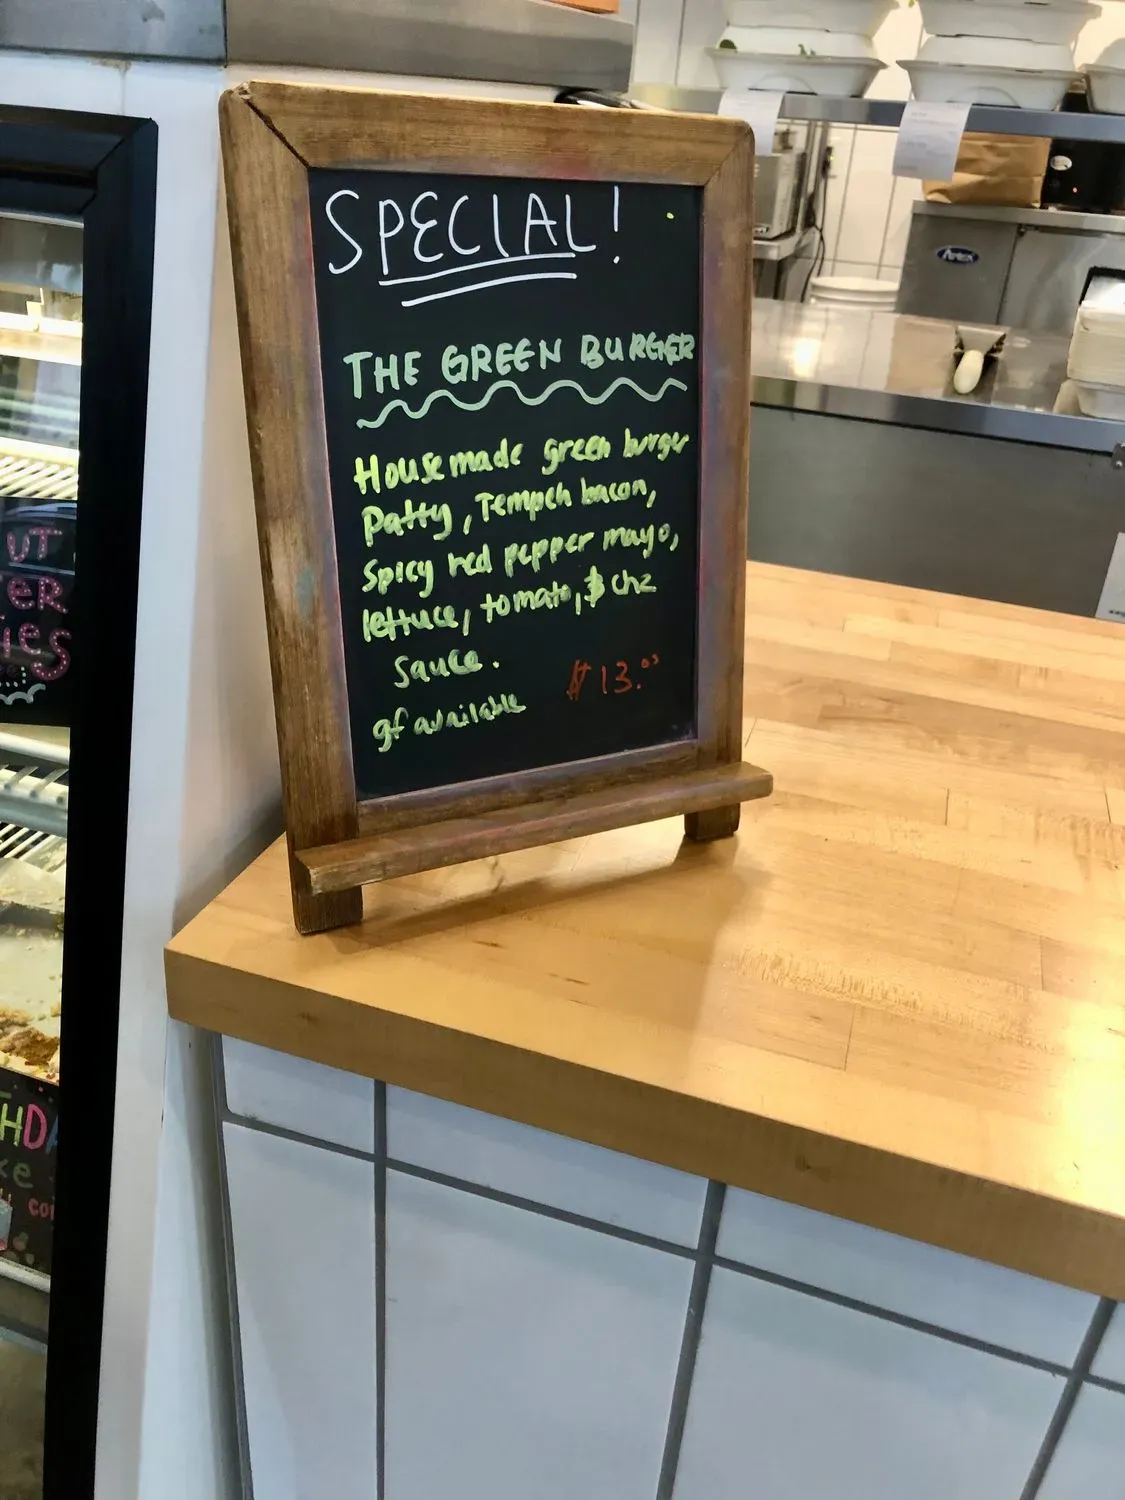 SPECIAL!
THE GREEN BURGER
Housemade green burger
Patty, Tempeh bacon,
Spicy red pepper mayo,
lettuce, tomato, & chz
sauce.
gf available
$13.00
UT
ER
ies
HDA
ke
COM